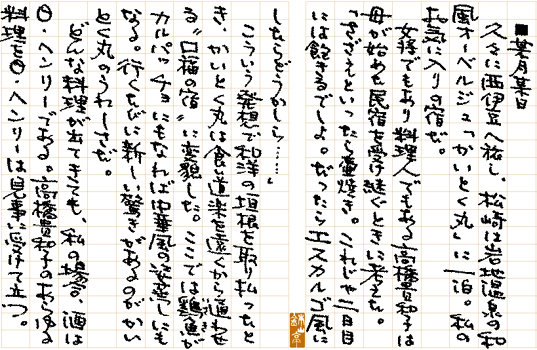 ■某月某日
久々に西伊豆へ旅し、松崎は岩地温泉の和
風オーベルジュ「かいとく丸」に一泊。私の
お気に入りの宿だ。
女将でもあり料理人でもある高橋貴和子は
母が始めた民宿を受け継ぐときに考えた。
「さざえといったら壷焼き。これじゃ二日目
には飽きるでしょ。だったらエスカルゴ風に
したらどうかしら……」
こういう発想で和洋の垣根を取り払ったと
き、かいとく丸は食い道楽を遠くから通わせ
る〝口福の宿〟に変貌した。ここでは鶏魚が
いさき
カルパッチョにもなれば中華風の姿蒸しにも
なる。行くたびに新しい驚きがあるのがかい
とく丸のうれしさだ。
どんな料理が出てきても、私の場合、酒は
O・ヘンリーである。高橋貴和子のあらゆる
料理をO・ヘンリーは見事に受けて立つ。